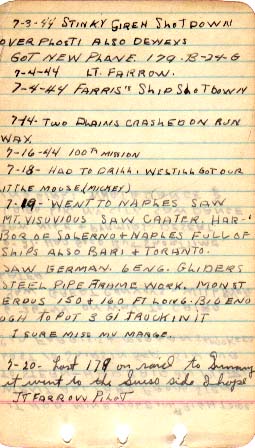 7-3-44 STINKY GIREH SHOTDOWN
OVER PLOSTI ALSO DEWEYS
GOT NEW PLANE 179-B-24-G
7-4-44 LT. FARROW.
7-4-44 FARRIS'S SHIP SHOTDOWN
7-14- TWO PLAINS CRASHED ON RUN
WAY.
7-16-44 100TH MISSION
7-18- HAD TO DRILL. WE STILL GOT OUR
LITTLE MOUSE. (MICKEY)
7-19- WENT TO NAPLES SAW
MT. VISUVIOUS SAW CRATER. HAR-
BOR OF SOLERNO + NAPLES FULL OF
SHIPS ALSO BARI + TORANTO.
SAW GERMAN. 6 ENG. GLIDERS
STEEL PIPE FRAME WORK. MONST
EROUS 150 & 160 FT LONG. BIG ENO
UGH TO PUT 3 GI TRUCK IN IT
I SURE MISS MY MARGE.
7-20- Lost 179 on raid to
it went to the Swiss side I hope
LT FARROW PILOT